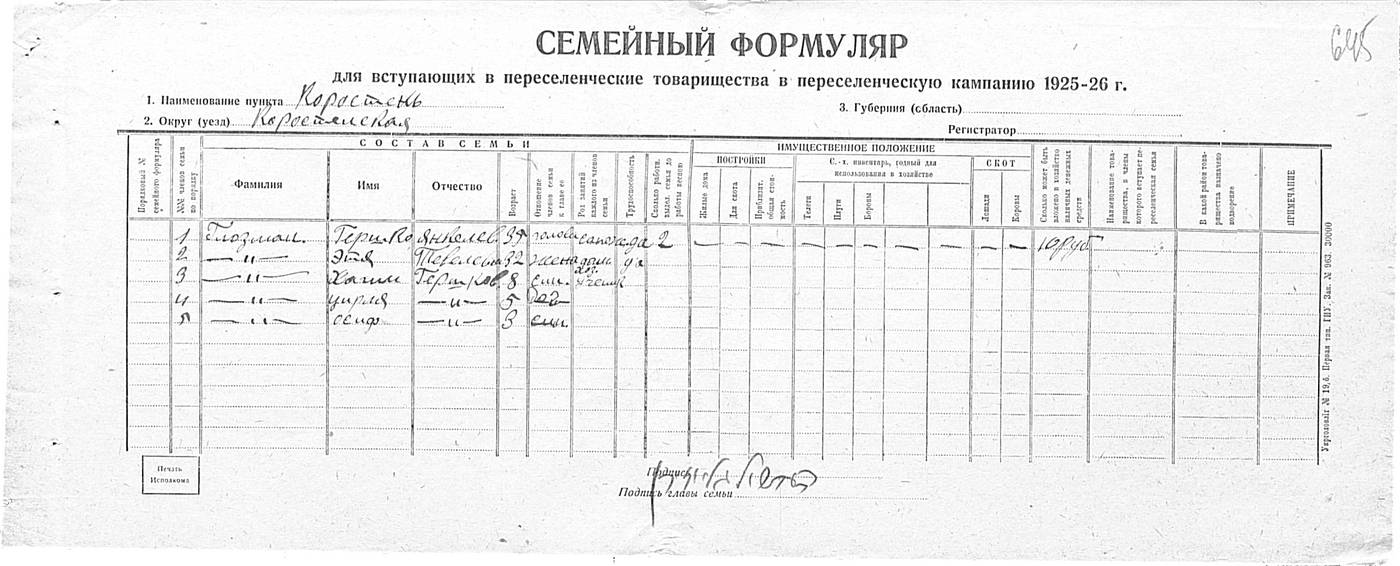 645
СЕМЕЙНЫЙ ФОРМУЛЯР
для вступающих в переселенческие товарищества в переселенческую кампанию 1925-26 г.
1. Наименование пункта Коростень
3. Губерния (область)
2. Округ (уезд) Коростенская
Регистратор
Порядковый № семейного формуляра
№№ членов семьи по порядку
СОСТАВ СЕМЬИ
Фамилия
Имя
Отчество
Возраст
Отношение членов семьи к главе ее
Род занятий каждого из членов семьи
Трудоспособность
Сколько работн. выдел. семья до работы весною
ИМУЩЕСТВЕННОЕ ПОЛОЖЕНИЕ
ПОСТРОЙКИ
Жилые дома
Для скота
Приблизит. общая стоимость
С.-х. инвентарь, годный для использования в хозяйстве
Телеги
Плуги
Бороны
СКОТ
Лошади
Коровы
Сколько может быть вложено в хозяйство наличных денежных средств
Наименование товарищества, в члены которого вступает переселенческая семья
В какой район товарищества назначено водворение
ПРИМЕЧАНИЕ
1 Глозман. Гершко Янкелев. 35 голова сапож да 2 — — — — — — — — — 10 руб
2 —"— Этя 32 жена дом. хоз. да
3 —"— Хаим Гершков. 8 сын. ученик
4 —"— Цирля —"— 5 доч
5 —"— Осиф —"— 3 сын.
Печать Исполкома
Подпись
Подпись главы семьи
Укрголовліт № 19,б. Первая тип. ГИУ. Зак. № 963. 30000